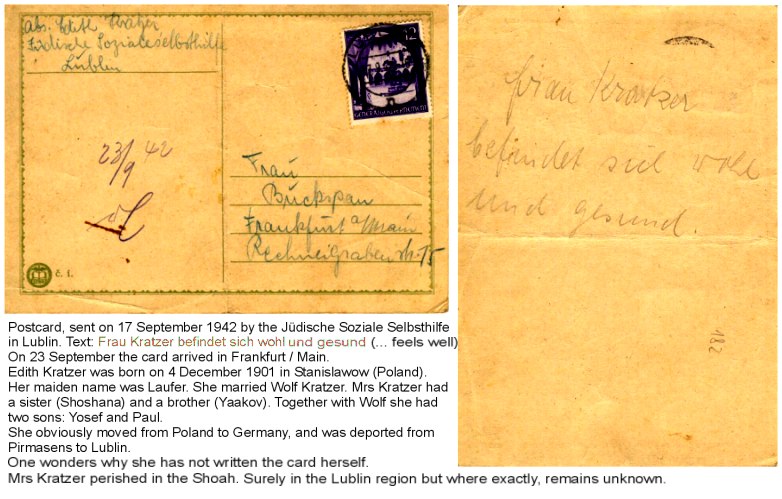 abs. Edith Kratzer
Jüdische Soziale Selbsthilfe
Lublin
12
GENERALGOUVERNEMENT
23/9 42
Frau
Buckspan
Frankfurt a/Main
Rechneigrabenstr. 15
č. 1.
Frau Kratzer
befindet sich wohl
und gesund.
182
Postcard, sent on 17 September 1942 by the Jüdische Soziale Selbsthilfe
in Lublin. Text: Frau Kratzer befindet sich wohl und gesund (... feels well)
On 23 September the card arrived in Frankfurt / Main.
Edith Kratzer was born on 4 December 1901 in Stanislawow (Poland).
Her maiden name was Laufer. She married Wolf Kratzer. Mrs Kratzer had
a sister (Shoshana) and a brother (Yaakov). Together with Wolf she had
two sons: Yosef and Paul.
She obviously moved from Poland to Germany, and was deported from
Pirmasens to Lublin.
One wonders why she has not written the card herself.
Mrs Kratzer perished in the Shoah. Surely in the Lublin region but where exactly, remains unknown.